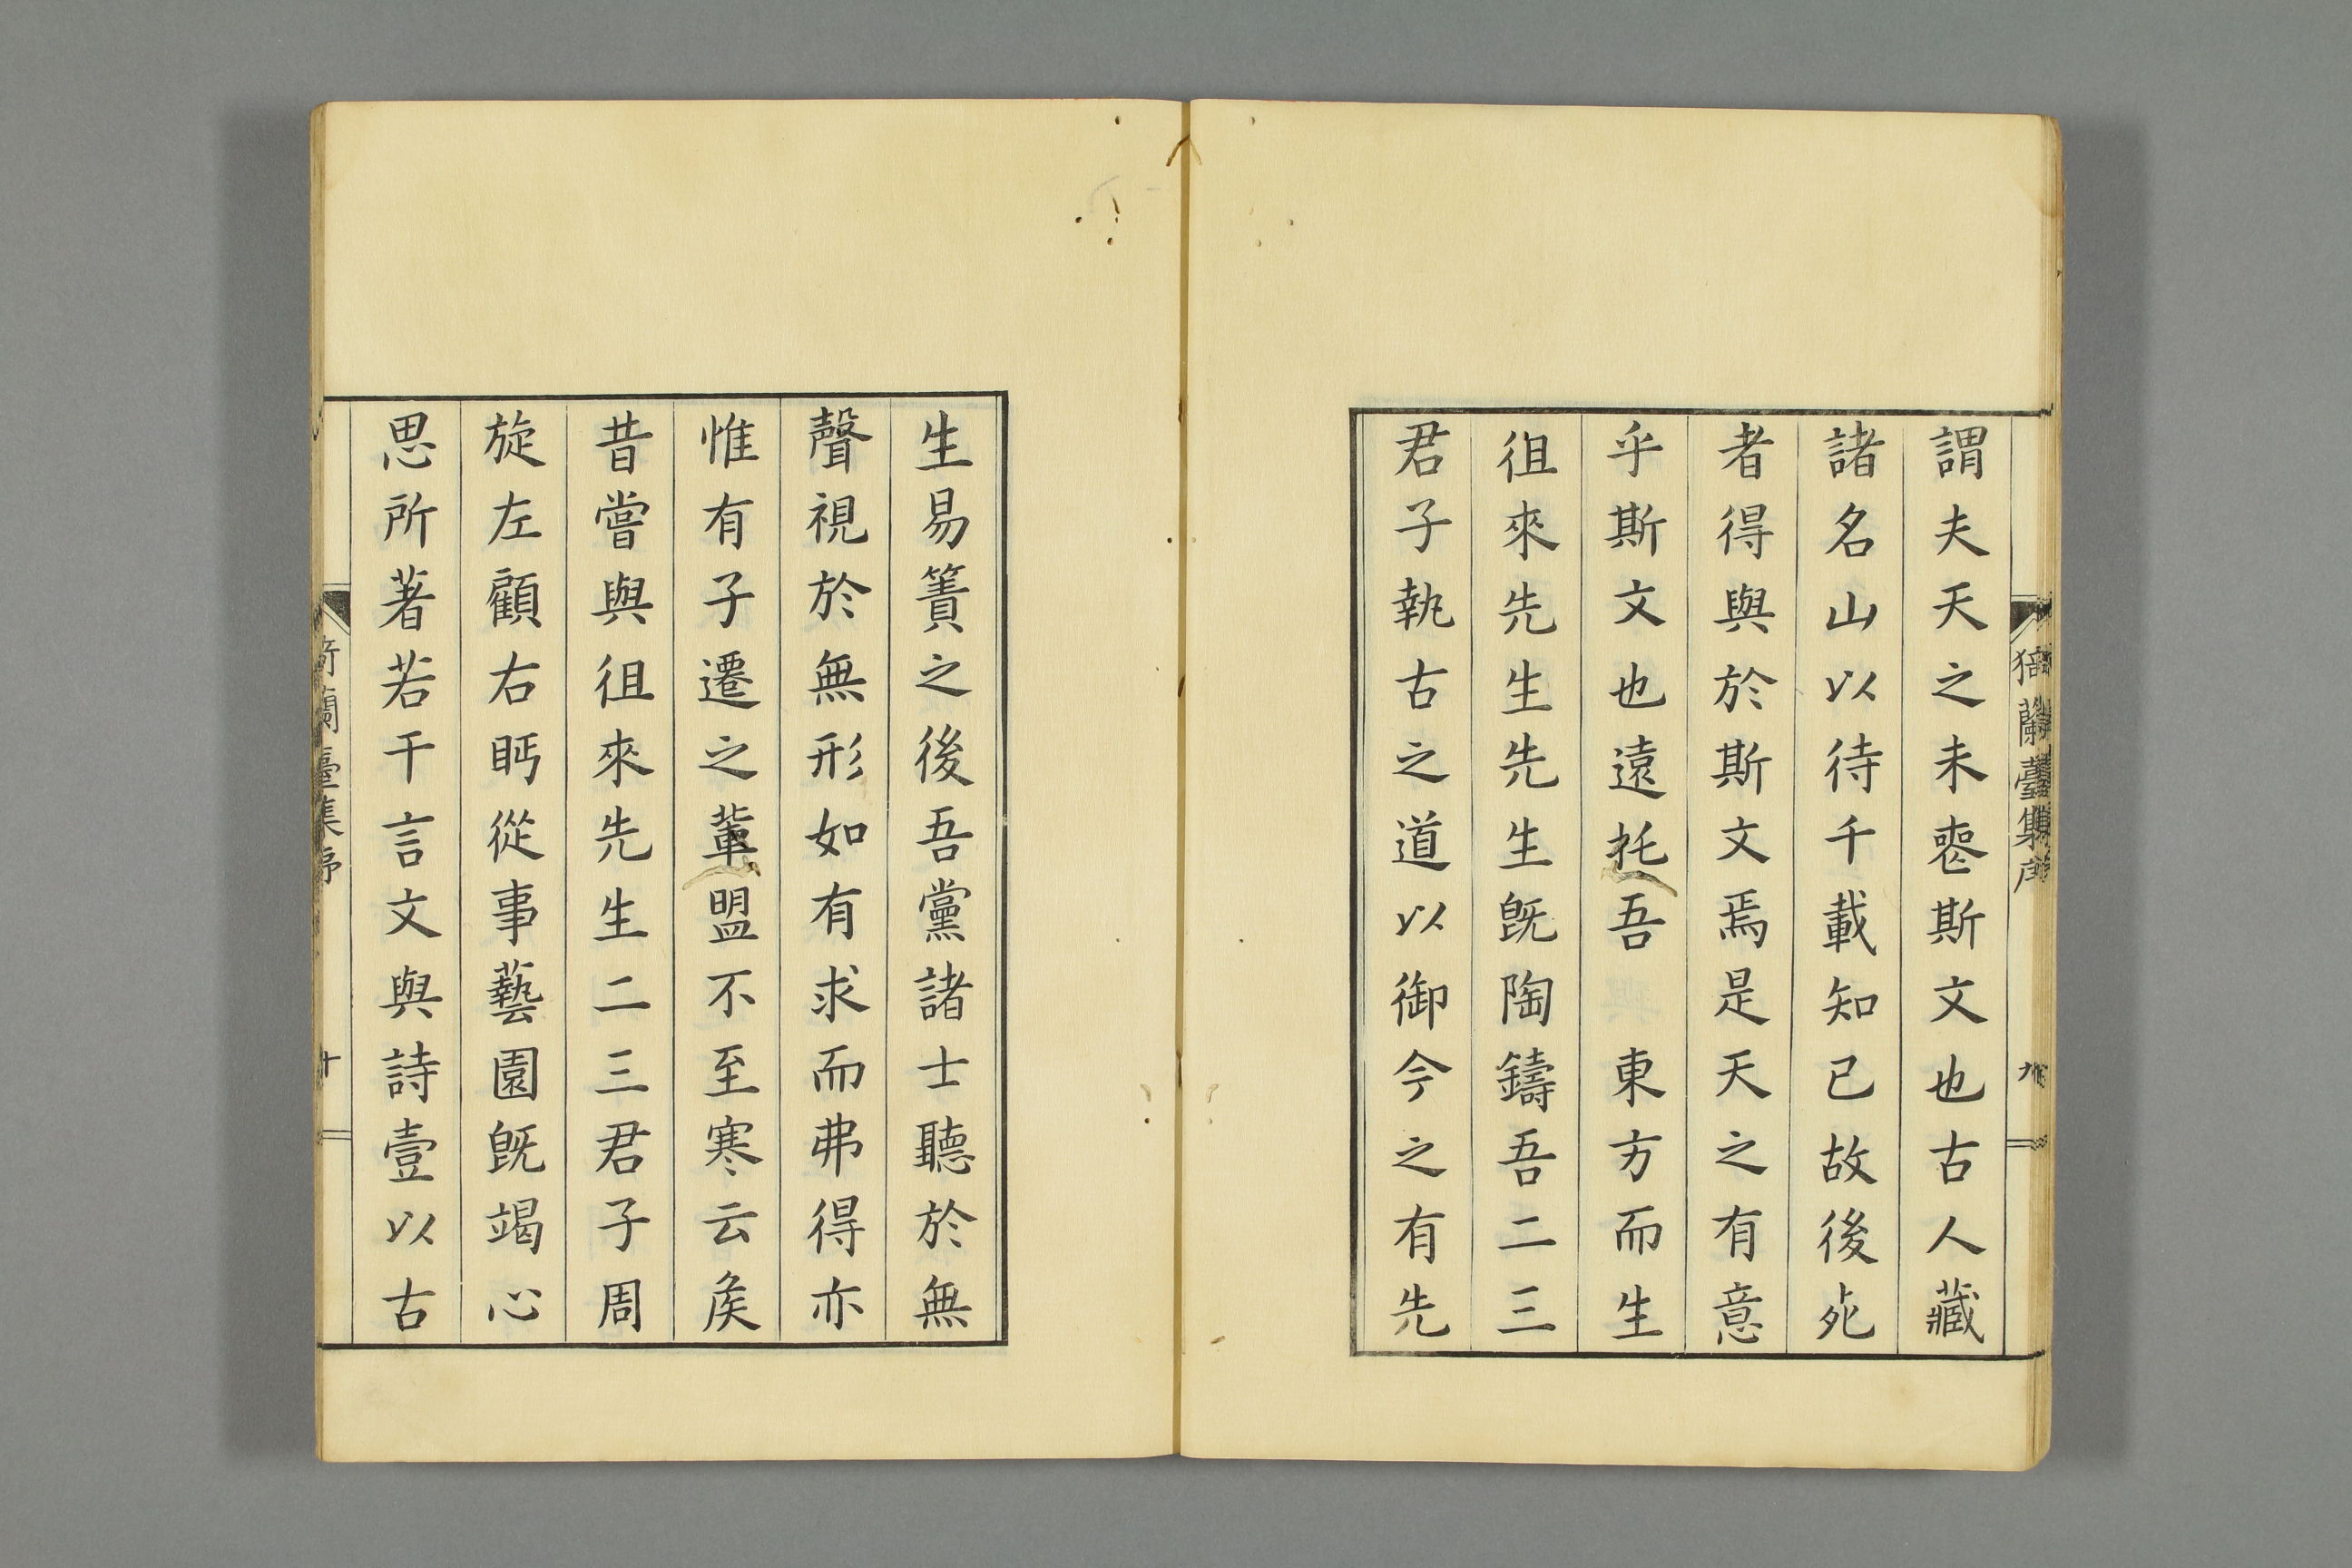 謂夫天之未喪斯文也古人藏
諸名山以待千載知已故後死
者得與於斯文焉是天之有意
乎斯文也遠托吾 東方而生
徂來先生先生旣陶鑄吾二三
君子執古之道以御今之有先
生易簀之後吾黨諸士聽於無
聲視於無形如有求而弗得亦
惟有子遷之輩盟不至寒云矦
昔嘗與徂來先生二三君子周
旋左顧右眄從事藝園旣竭心
思所著若干言文與詩壹以古
蘭臺集序
十